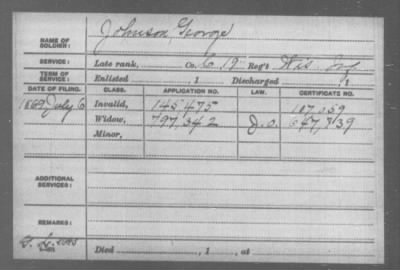 NAME OF SOLDIER: Johnson, George
SERVICE: Late rank, Co. C 19 Reg't Wis. Inf.
TERM OF SERVICE: Enlisted , 1 Discharged , 1
DATE OF FILING. CLASS. APPLICATION NO. LAW. CERTIFICATE NO.
1869, July 6 Invalid, 145,475 107,059
Widow, 797,342 J.O. 647,839
Minor,
ADDITIONAL SERVICES:
REMARKS:
Died , 1 , at